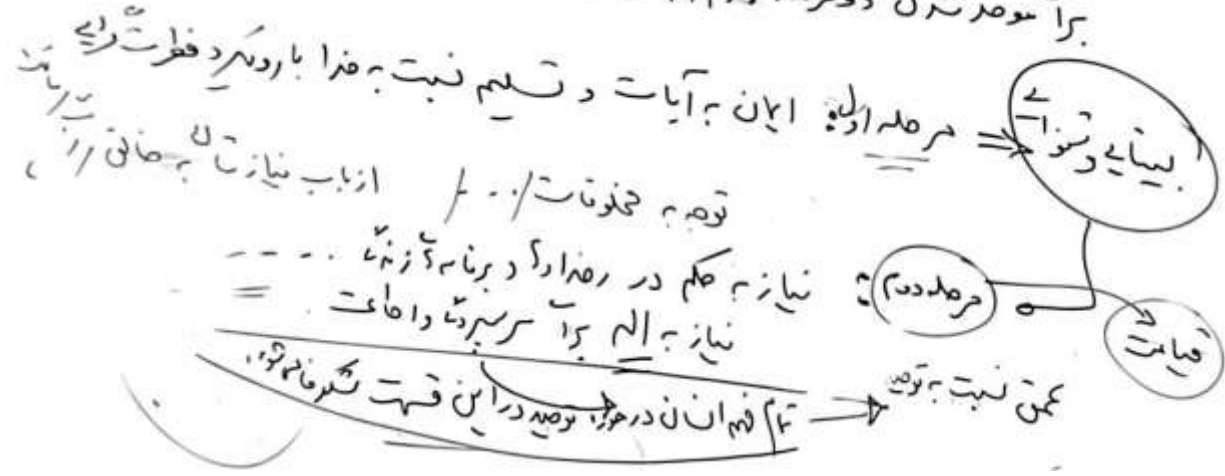 برا موحد شدن
بینایی و شنوایی ⇐ مرحله اول: ایمان به آیات و تسلیم نسبت به خدا با رویکرد فطرت گرایی
توجه به مخلوقات / ... / از باب نیازشان به خالق
مرحله دوم: نیاز به حکم در رخدادها و برنامه‌ها زندگی ....
قیامت
نیاز به اله برا سرسپردگی و اطاعت
تمام فهم انسان در حوزه توحید در این قسمت شکوفا می‌شود.
عمق نسبت به توحید